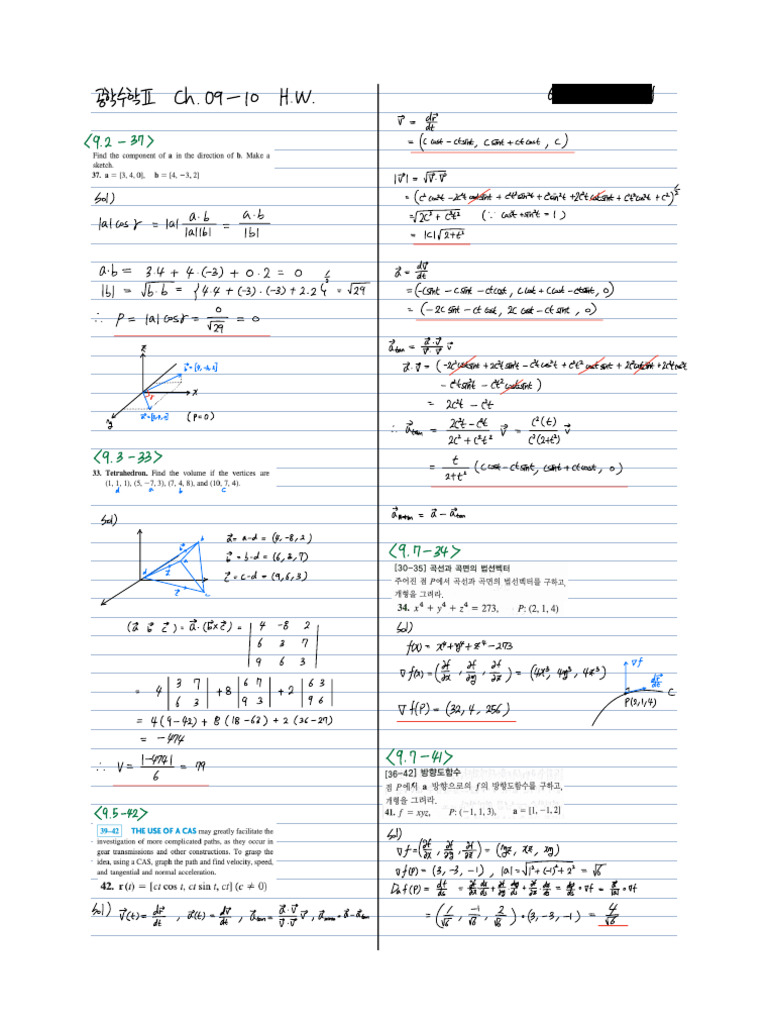 공학수학Ⅱ Ch.09-10 H.W.
<9.2-37>
Find the component of a in the direction of b. Make a
sketch.
37. a = [3, 4, 0], b = [4, −3, 2]
Sol)
|a|cosγ = |a| a·b / |a||b| = a·b / |b|
a·b = 3·4 + 4·(-3) + 0·2 = 0
|b| = √b·b = {4·4 + (-3)·(-3) + 2·2}^½ = √29
∴ P = |a|cosγ = 0/√29 = 0
z
x
y
(P=0)
<9.3-33>
33. Tetrahedron. Find the volume if the vertices are
(1, 1, 1), (5, −7, 3), (7, 4, 8), and (10, 7, 4).
d a b c
Sol)
a⃗ = a-d = (4, -8, 2)
b⃗ = b-d = (6, 3, 7)
c⃗ = c-d = (9, 6, 3)
(a⃗ b⃗ c⃗) = a⃗·(b⃗×c⃗) = | 4 -8 2 |
| 6 3 7 |
| 9 6 3 |
= 4 |3 7; 6 3| + 8 |6 7; 9 3| + 2 |6 3; 9 6|
= 4(9-42) + 8(18-63) + 2(36-27)
= -474
∴ V = |-474| / 6 = 79
<9.5-42>
39–42 THE USE OF A CAS may greatly facilitate the
investigation of more complicated paths, as they occur in
gear transmissions and other constructions. To grasp the
idea, using a CAS, graph the path and find velocity, speed,
and tangential and normal acceleration.
42. r(t) = [ct cos t, ct sin t, ct] (c ≠ 0)
Sol) v⃗(t) = dr⃗/dt , a⃗(t) = dv⃗/dt , a⃗tan = a⃗·v⃗ / v⃗·v⃗ v⃗, a⃗norm = a⃗ - a⃗tan
v⃗ = dr⃗/dt
= (c cost - ct sint, c sint + ct cost, c)
|v⃗| = √v⃗·v⃗
= (c²cos²t - 2c²t cost sint + c²t²sin²t + c²sin²t + 2c²t cost sint + c²t²cos²t + c²)^½
= √2c² + c²t² (∵ cos²t + sin²t = 1)
= |c|√2+t²
a⃗ = dv⃗/dt
= (-c sint - c sint - ct cost, c cost + c cost - ct sint, 0)
= (-2c sint - ct cost, 2c cost - ct sint, 0)
a⃗tan = a⃗·v⃗ / v⃗·v⃗ v⃗
= 2c²t - c²t
∴ a⃗tan = 2c²t - c²t / 2c² + c²t² v⃗ = c²(t) / c²(2+t²) v⃗
= t / 2+t² (c cost - ct sint, c sint + ct cost, 0)
= a⃗ - a⃗tan
<9.7-34>
[30-35] 곡선과 곡면의 법선벡터
주어진 점 P에서 곡선과 곡면의 법선벡터를 구하고,
개형을 그려라.
34. x⁴ + y⁴ + z⁴ = 273, P: (2, 1, 4)
Sol)
f(x) = x⁴+y⁴+z⁴-273
∇f(x) = (∂f/∂x, ∂f/∂y, ∂f/∂z) = (4x³, 4y³, 4z³)
∇f(P) = (32, 4, 256)
∇f
C
P(2,1,4)
<9.7-41>
[36-42] 방향도함수
점 P에서 a 방향으로의 f의 방향도함수를 구하고,
개형을 그려라.
41. f = xyz, P: (−1, 1, 3), a = [1, −1, 2]
Sol)
∇f = (∂f/∂x, ∂f/∂y, ∂f/∂z) = (yz, xz, xy)
∇f(P) = (3, -3, -1), |a| = √1²+(-1)²+2² = √6
= (1/√6, -1/√6, 2/√6)·(3, -3, -1) = 4/√6